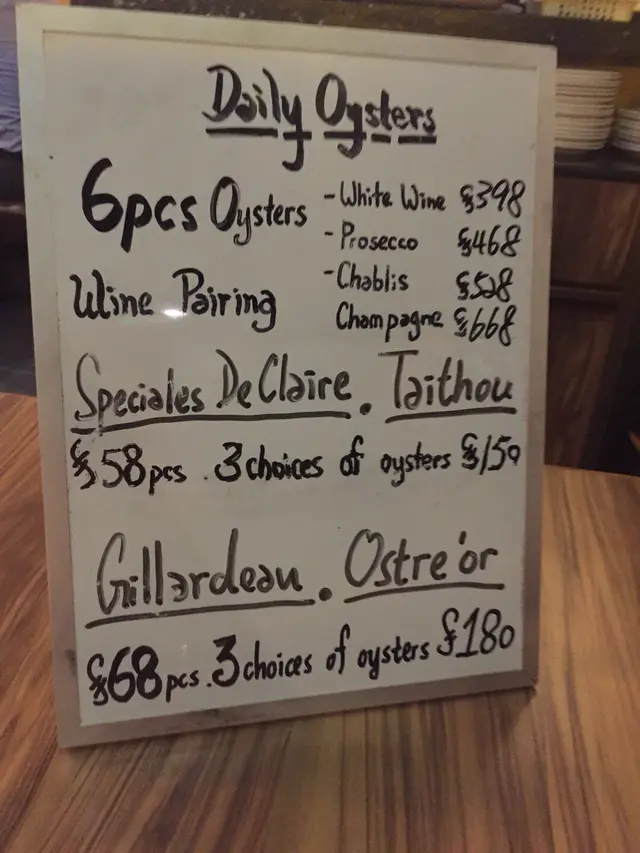 Daily Oysters
6pcs Oysters
Wine Pairing
- White Wine $398
- Prosecco $468
- Chablis $528
Champagne $668
Speciales De Claire . Taithou
$58pcs . 3 choices of oysters $150
Gillardeau . Ostre'or
$68pcs . 3 choices of oysters $180